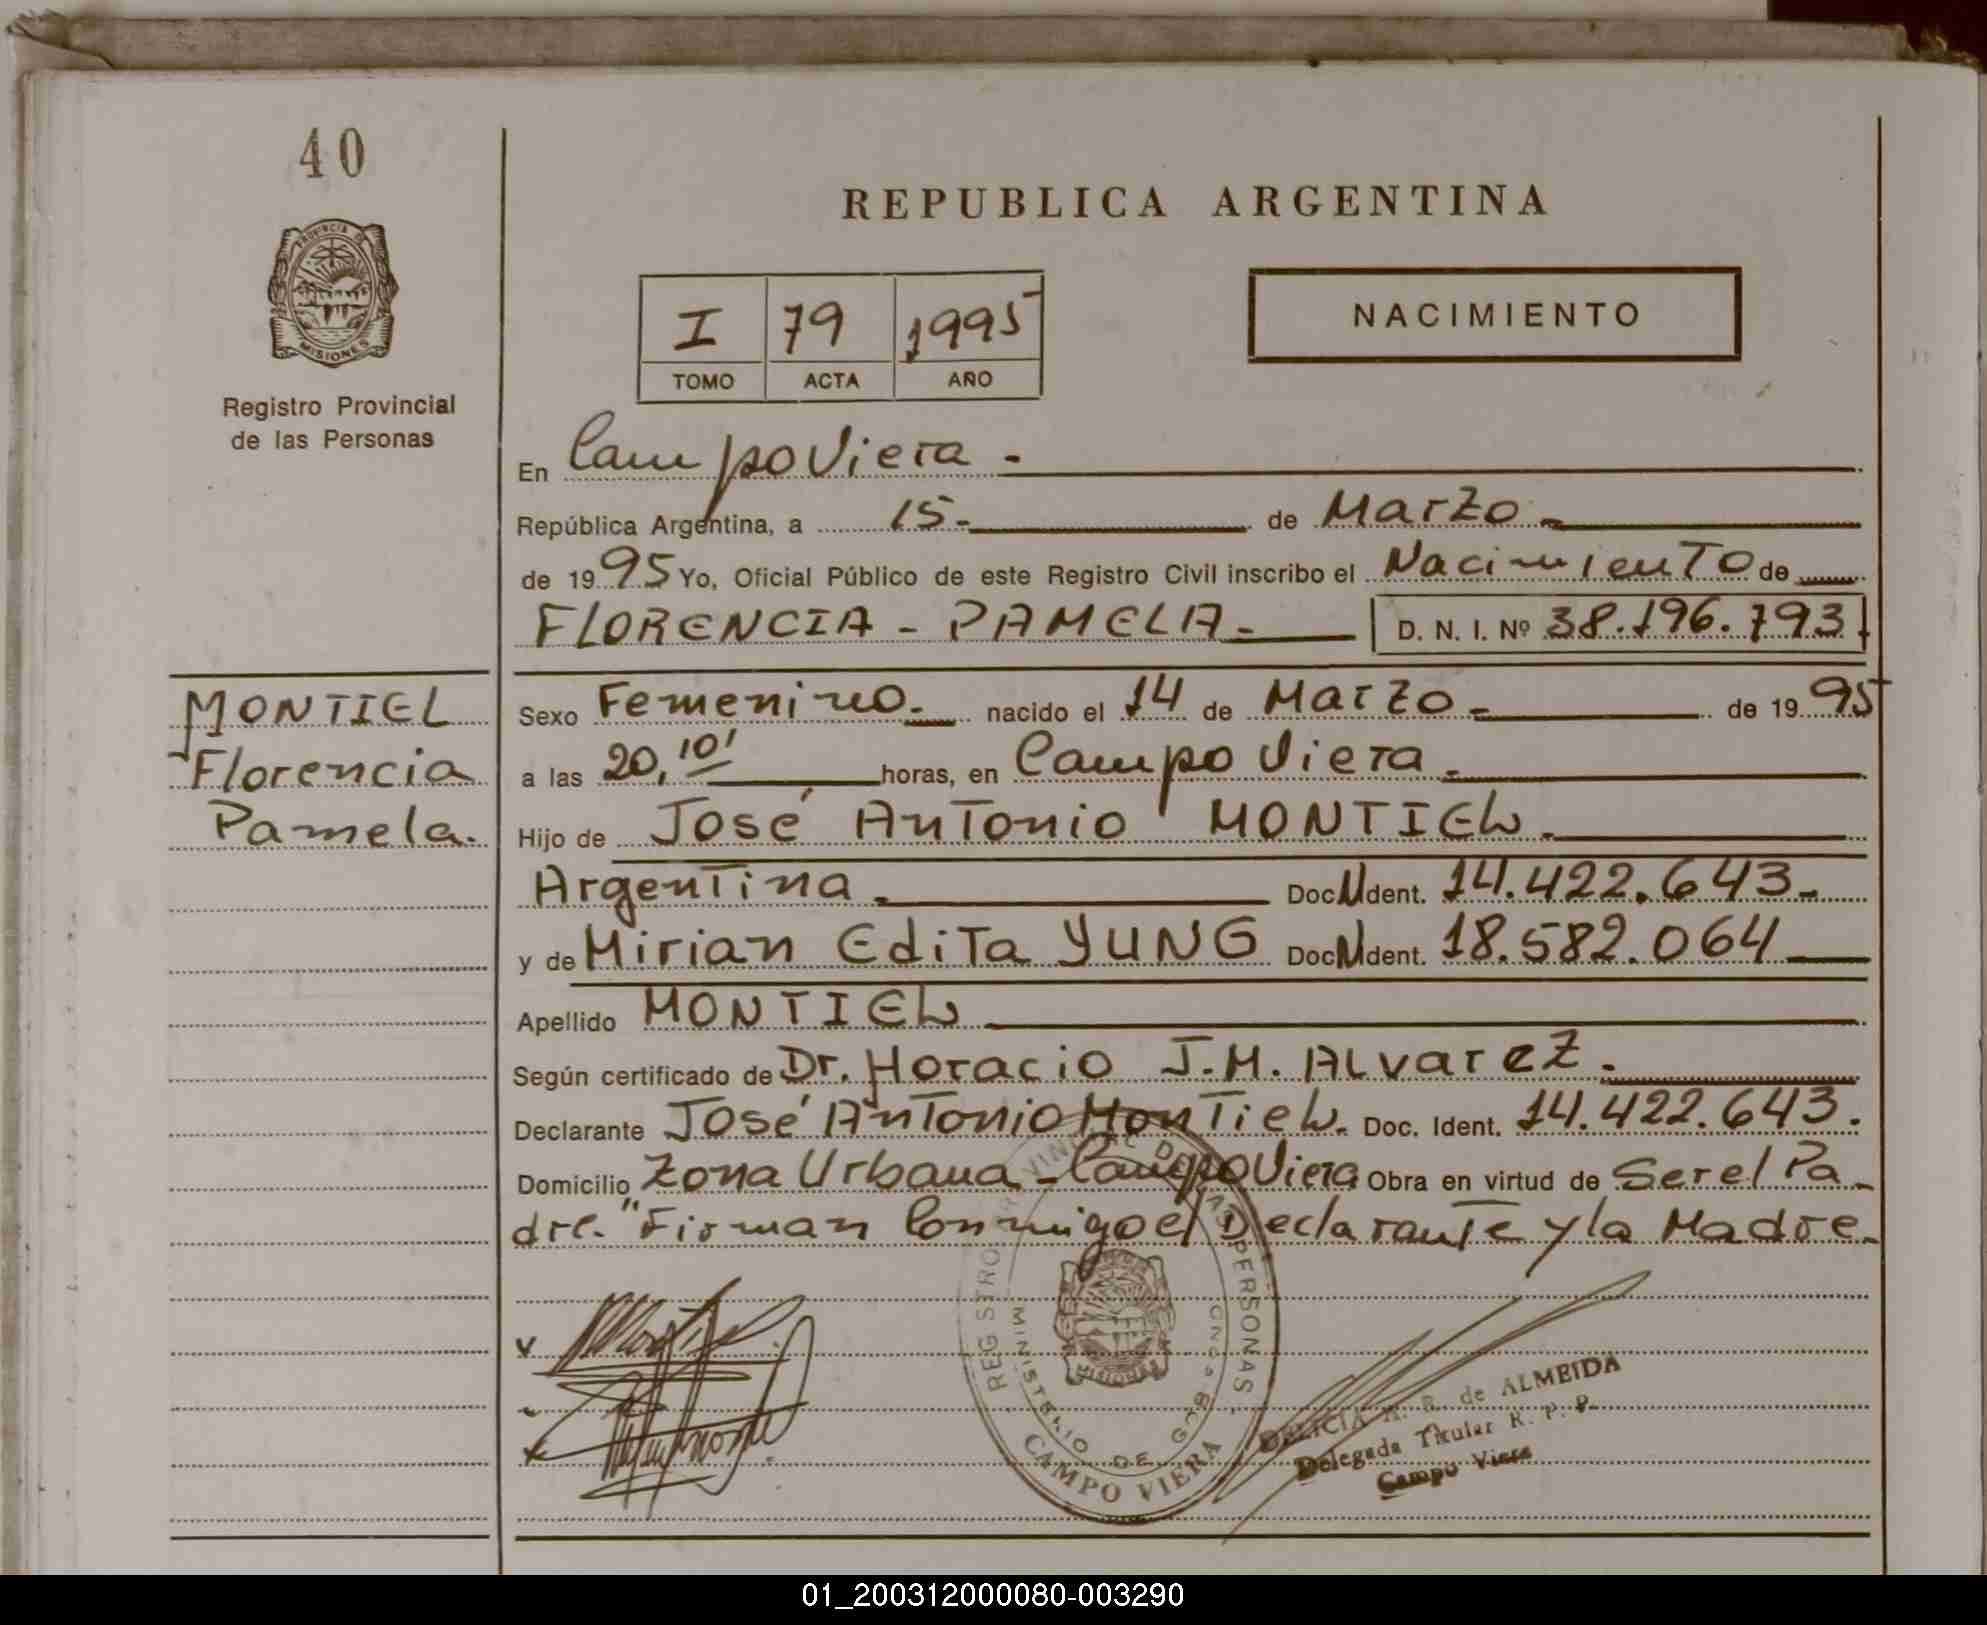 40
REPUBLICA ARGENTINA
PROVINCIA DE
MISIONES
Registro Provincial
de las Personas
I 79 1995
TOMO ACTA AÑO
NACIMIENTO
En Campo Viera -
República Argentina, a 15- de Marzo -
de 1995 Yo, Oficial Público de este Registro Civil inscribo el Nacimiento de
FLORENCIA - PAMELA - D. N. I. Nº 38.196.793
MONTIEL
Florencia
Pamela.
Sexo Femenino. nacido el 14 de Marzo - de 1995
a las 20,10' horas, en Campo Viera -
Hijo de José Antonio MONTIEL.
Argentina - Doc N dent. 14.422.643-
y de Mirian Edita YUNG Doc N dent. 18.582.064
Apellido MONTIEL
Según certificado de Dr. Horacio J.M. Alvarez.
Declarante José Antonio Montiel. Doc. Ident. 14.422.643.
Domicilio Zona Urbana - Campo Viera Obra en virtud de Ser el Pa-
dre. "Firman Conmigo el Declarante y la Madre-
REGISTRO PROVINCIAL DE LAS PERSONAS
MINISTERIO DE GOB.
MISIONES
CAMPO VIERA
DELICIA R. de ALMEIDA
Delegada Titular R. P. P.
Campo Viera
01_200312000080-003290